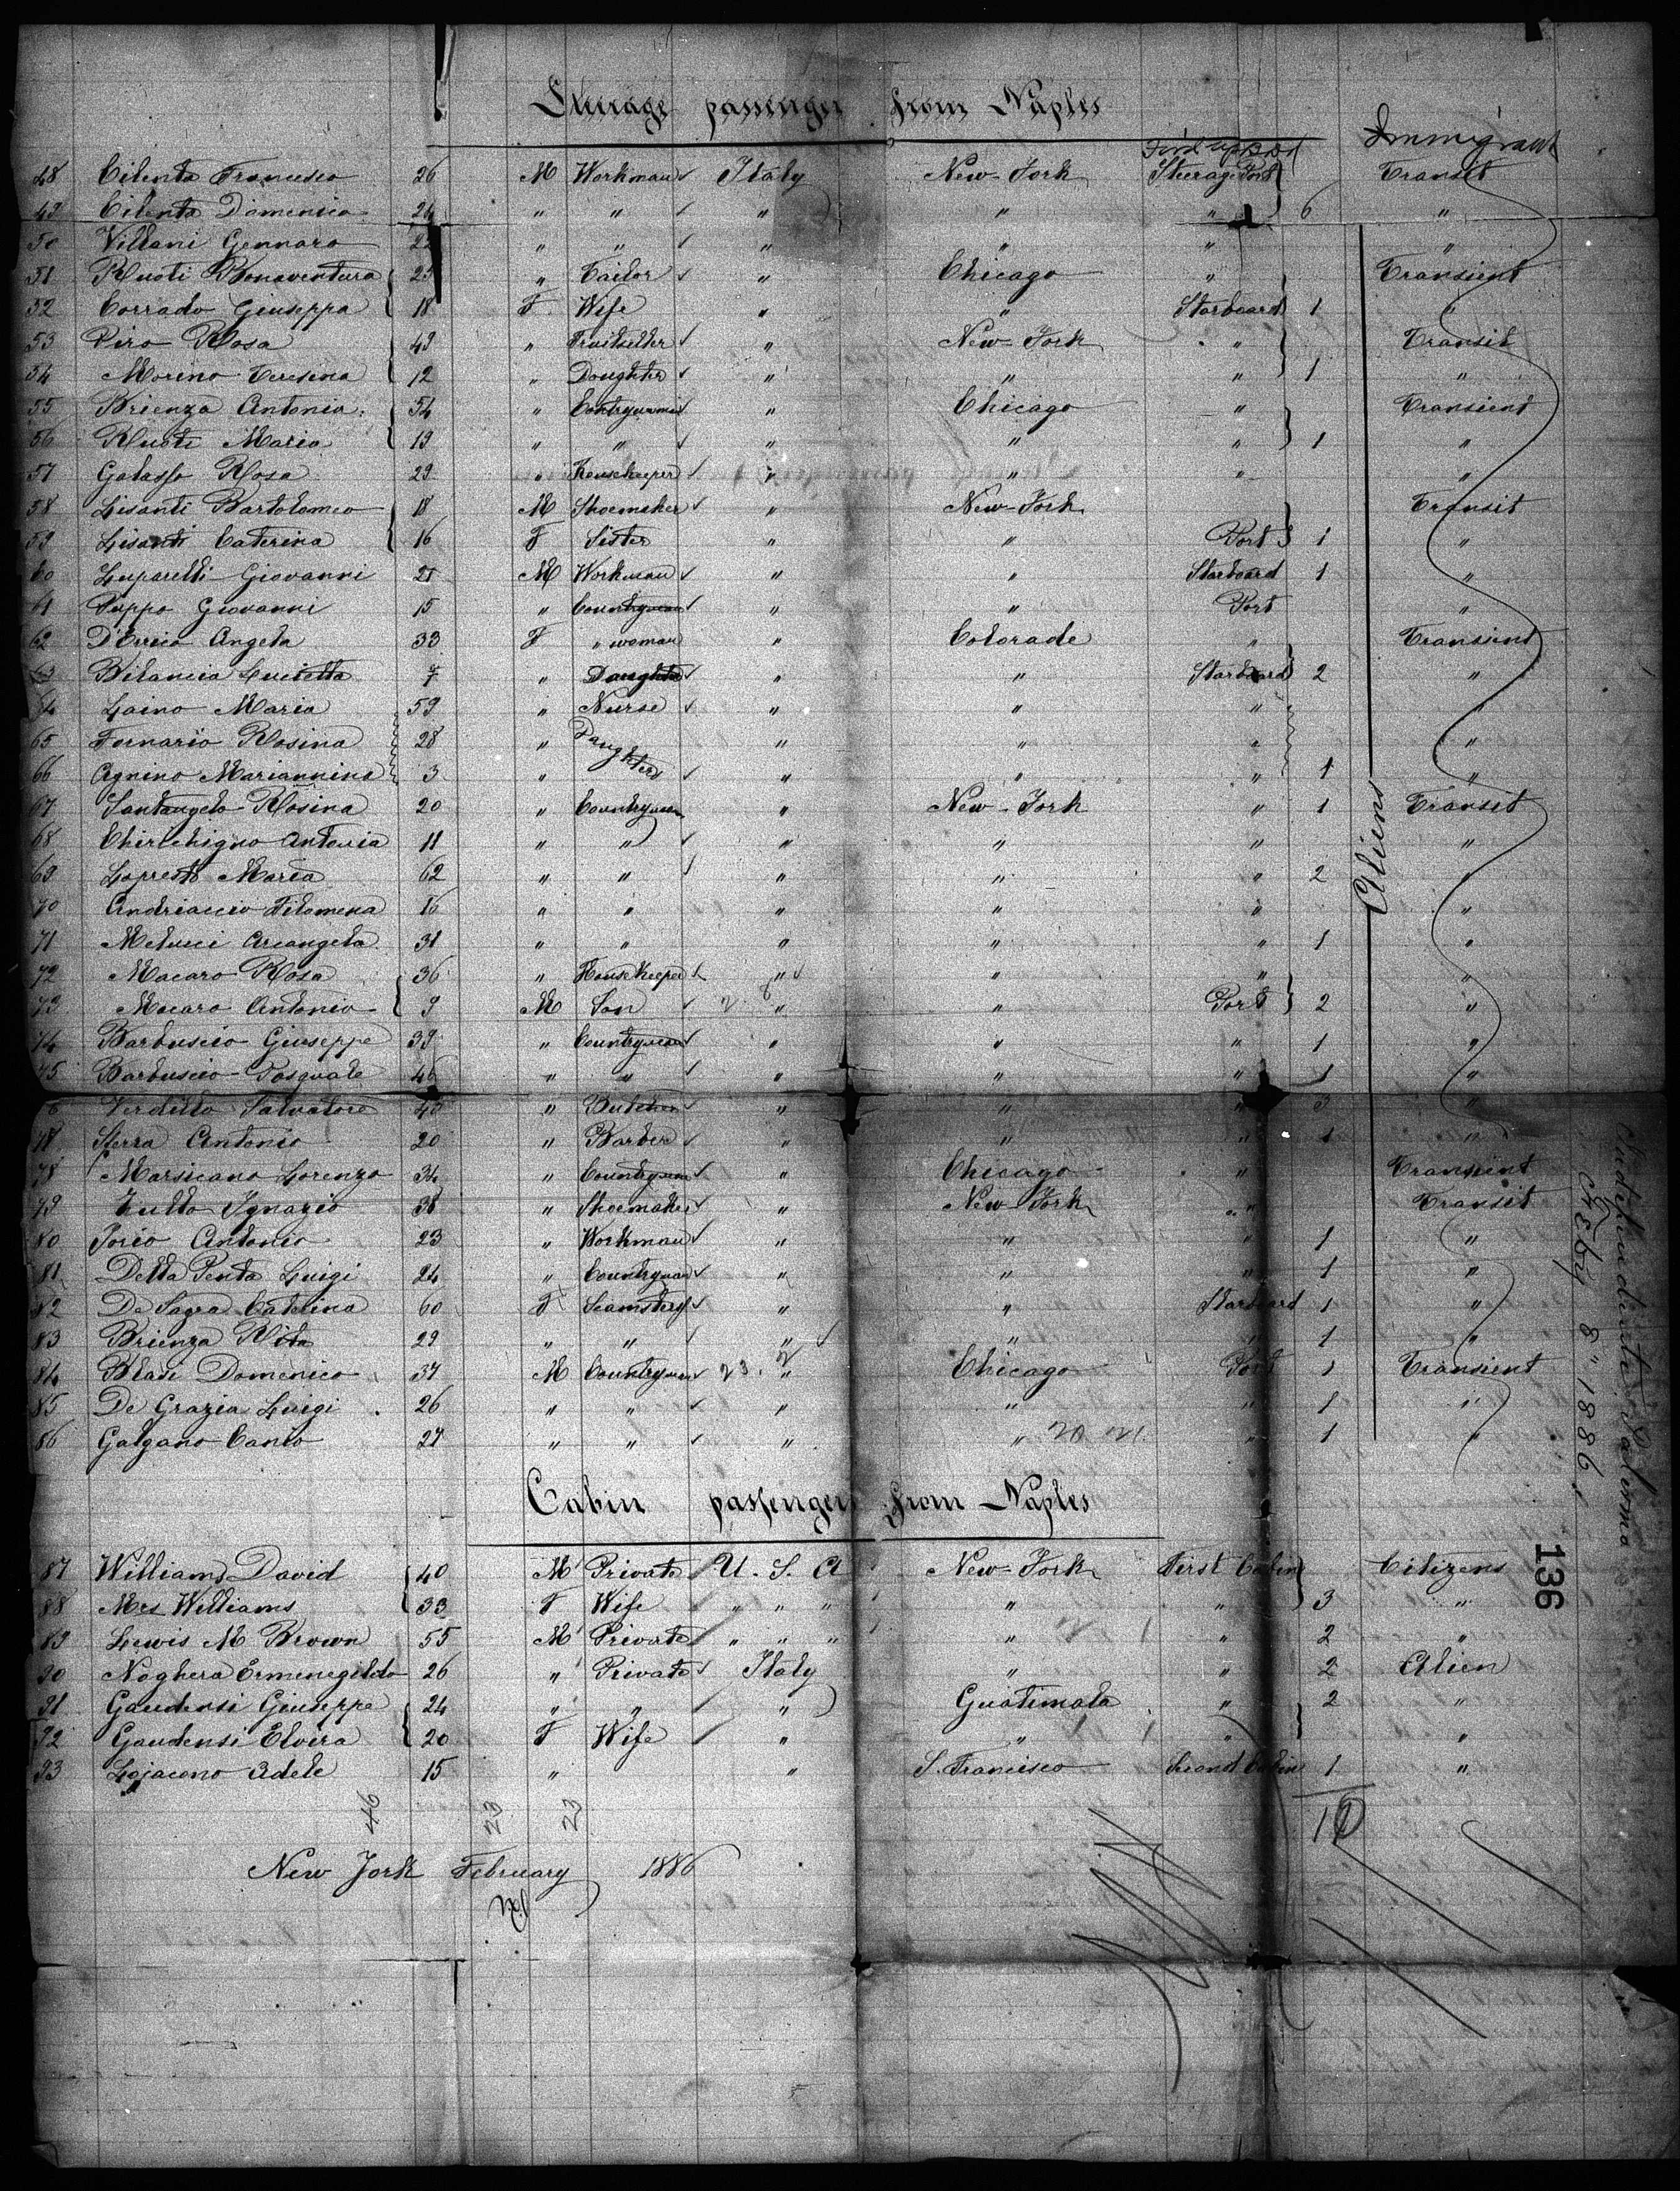 Steerage passenger from Naples
Immigrant
48 Cilento Francesco 26 M Workman Italy New-York Steerage Port Transit
49 Cilento Domenico 24 " " " " " 6 "
50 Villani Gennaro 22 " " " " " "
51 Ruoti Bonaventura 25 " Tailor " Chicago " Transient
52 Corrado Giuseppa 18 F Wife " " Starboard 1 "
53 Piro Rosa 49 " Fruitseller " New-York " Transit
54 Morino Teresina 12 " Doughter " " " 1 "
55 Brienza Antonia 54 " " Chicago " Transient
56 Ruoti Maria 19 " " " " " 1 "
57 Galasso Rosa 29 " Housekeeper " " " "
58 Lisanti Bartolomeo 18 M Shoemaker " New-York Transit
59 Lisanti Caterina 16 F Sister " " Port 1 "
60 Luparelli Giovanni 21 M Workman " " Starboard 1 "
61 Puppo Giovanni 15 " Countryman " " Port "
62 Angela 33 F " woman " Colorade " Transient
63 Bilancia Lucietta 7 " Daughter " " Starboard 2 "
64 Laino Maria 59 " Nurse " " " "
65 Fornario Rosina 28 " Daughter " " " "
66 Agnino Mariannina 3 " " " " 1 "
67 Santangelo Rosina 20 " Countryman " New-York " 1 Transit
68 Chirichigno Antonia 11 " " " " " "
69 Lopresto Maria 62 " " " " " 2 "
70 Andriaccio Filomena 16 " " " " " "
71 Melucci Arcangela 31 " " " " " 1 "
72 Macaro Rosa 36 " HouseKeeper " " " "
73 Macaro Antonio 9 M Son " " Port 2 "
74 Barbuscio Giuseppe 39 " Countryman " " " 1 "
75 Barbuscio Pasquale 46 " " " " " 1 "
6 Verdillo Salvatore 43 " Butcher " " " 3 "
Sterra Antonio 20 " Barber " " " 1 "
78 Marsicano Lorenzo 34 " Countryman " Chicago " Transient
79 Tullo Ignazio 38 " Shoemaker " New-York " Transit
80 Iorio Antonio 23 " Workman " " " 1 "
81 Della Penta Luigi 24 " Countryman " " " 1 "
82 De Sagra Caterina 60 F " " Starboard 1 "
83 Brienza Rita 29 " " " " " 1 "
84 Blasi Domenico 37 M Countryman " Chicago Port 1 Transient
85 De Grazia Luigi 26 " " " " " 1 "
86 Galgano Canio 27 " " " " " 1 "
Aliens
Cabin passengers from Naples
87 Williams David 40 M Private U. S. A New-York First Cabin Citizens
88 Mrs Williams 33 F Wife " " " " " 3 "
89 Lewis M Brown 55 M Private " " " " " 2 "
90 Noghera Ermenegildo 26 " Private Italy " " 2 Alien
91 Gaudensi Giuseppe 24 " " " Guatimala " 2 "
92 Gaudensi Elvira 20 F Wife " " " "
93 Lojacono Adele 15 " " S. Francisco Second Cabin 1 "
46 23 23
New York February 1886
Independente Palermo
Feby 8" 1886
136